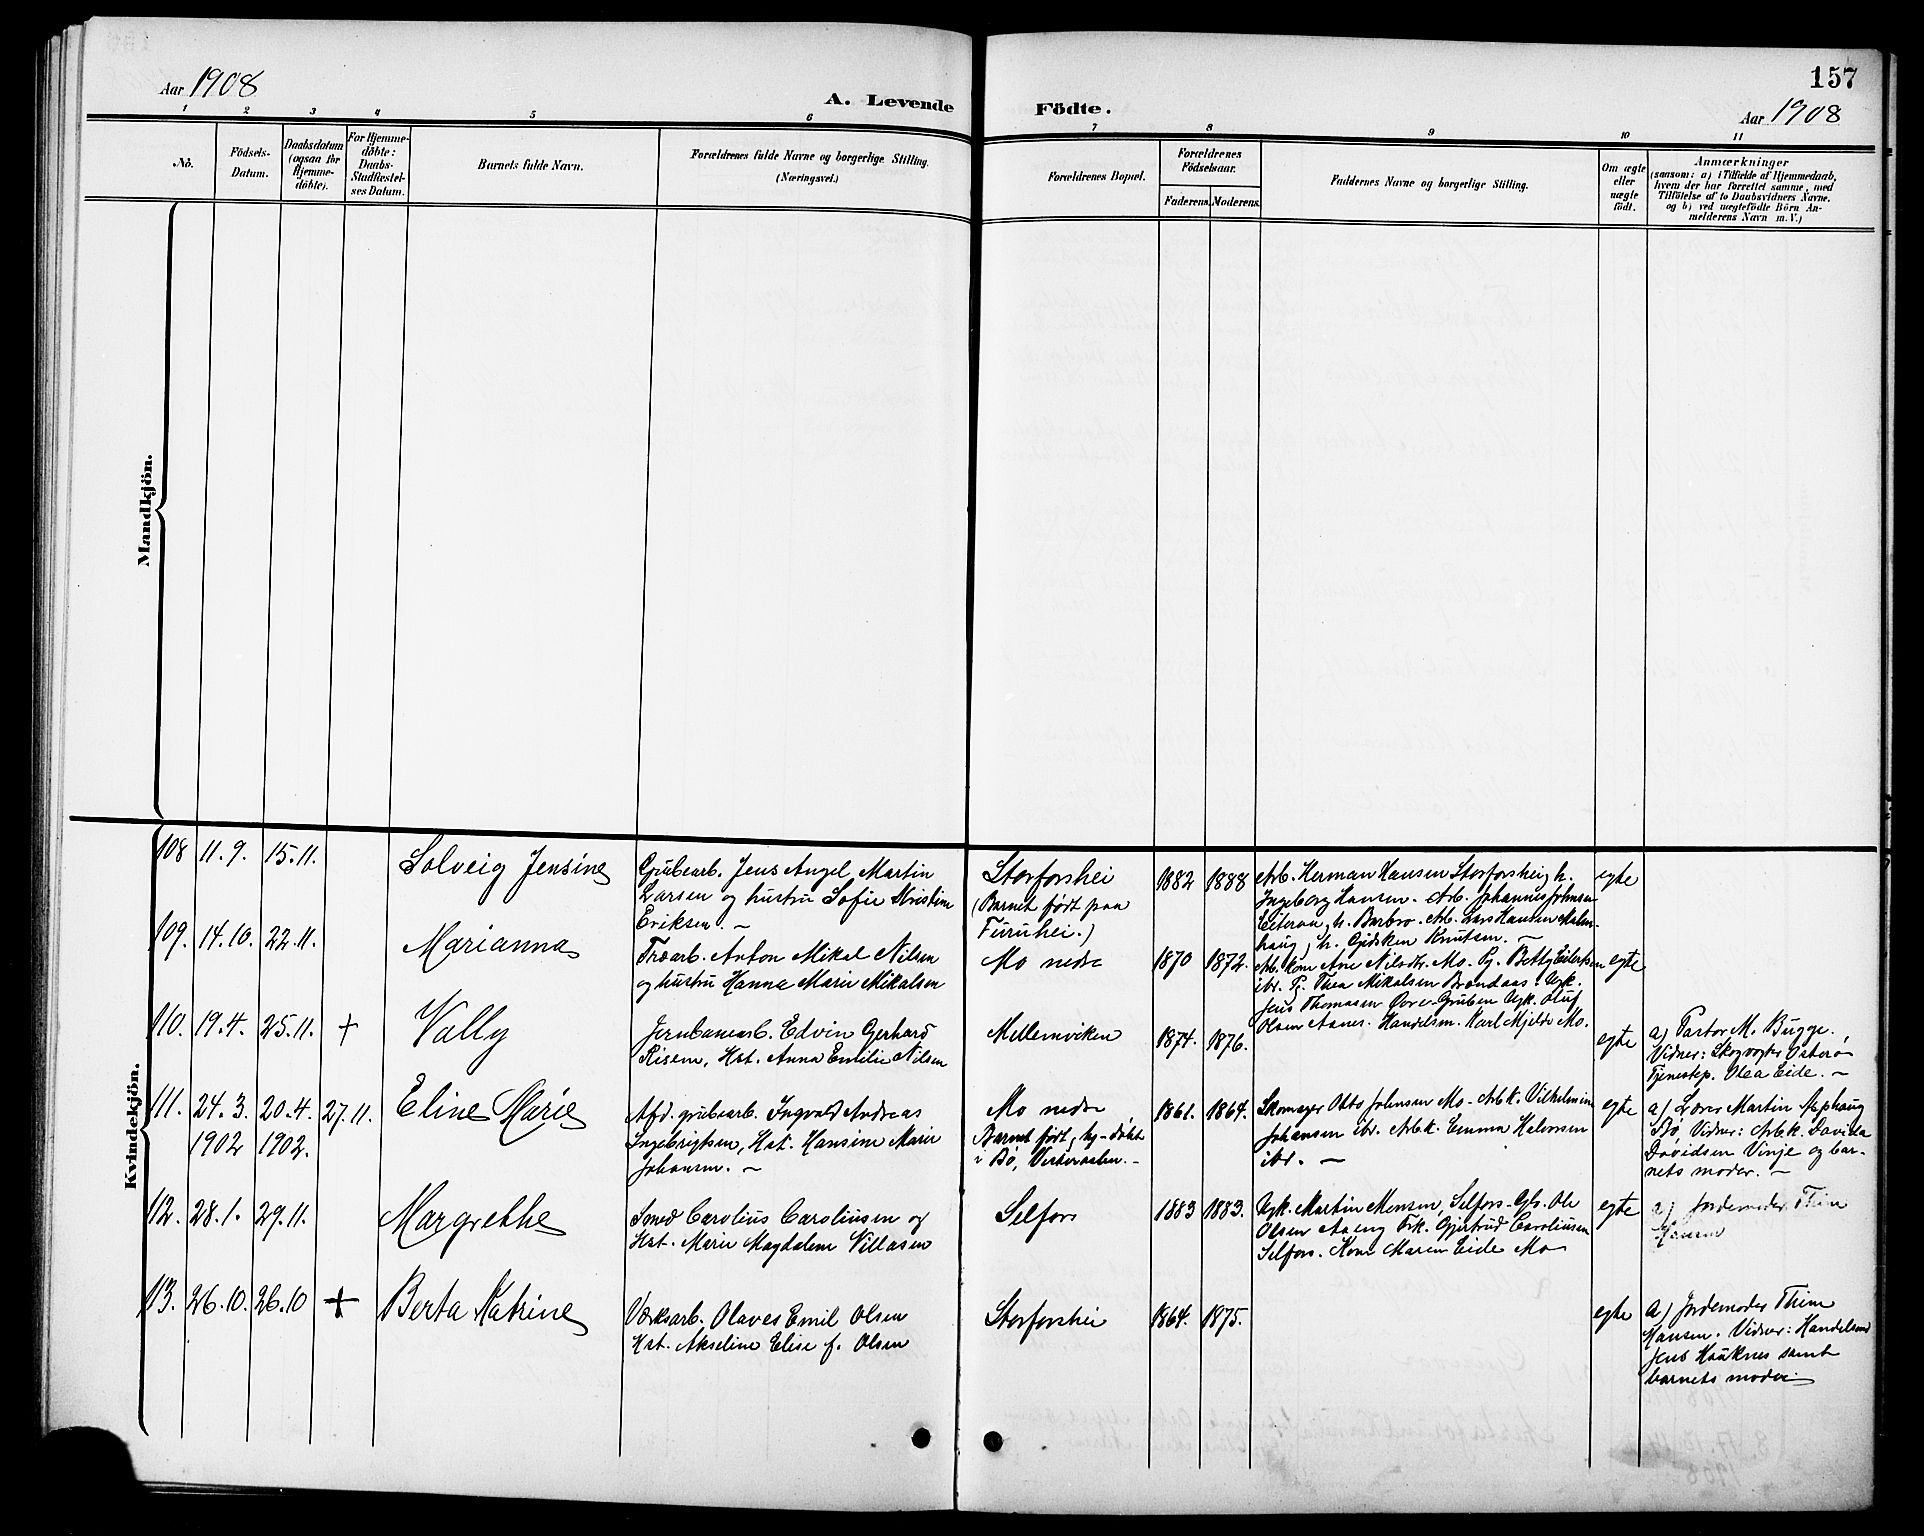 157
Aar 1908
A. Levende Födte.
Aar 1908
1 2 3 4 5 6 7 8 9 10 11
No.
Födsels-
Datum.
Daabsdatum
(ogsaa for
Hjemme-
döbte).
For Hjemme-
döbte:
Daabs-
Stadfæstel-
ses Datum.
Barnets fulde Navn.
Forældrenes fulde Navne og borgerlige Stilling.
(Næringsvei.)
Forældrenes Bopæl.
Forældrenes
Födselsaar.
Faderens. Moderens.
Faddernes Navne og borgerlige Stilling.
Om ægte
eller
uægte
födt.
Anmærkninger
(saasom: a) i Tilfælde af Hjemmedaab,
hvem der har forrettet samme, med
Tilföielse af to Daabsvidners Navne.
og b) ved uægtefödte Börn An-
melderens Navn m. V.)
Mandkjön.
Kvindekjön.
108 11.9. 15.11.
Solveig Jensine
Grubearb. Jens Angel Martin
Larsen og hustru Sofie Kristine
Eriksen. —
Storforshei
(Barnet født paa
Furuhei.)
1882 1888
Arb. Herman Hansen Storforshei, h.
Ingeborg Hansen. Arb. Johannes Johnsen
Eiteraa, h. Barbro. Arb. Lars Hansen Malm-
haug, h. Gidsken Knutsen. —
egte
109. 14.10. 22.11.
Marianna
Træarb. Anton Mikal Nilsen
og hustru Hanna Marie Mikalsen
Mo nedre
1870 1872.
Arb. kone Ane Nilsdtr. Mo. Pg. Betty Eilertsen
ibr. Pg. Thea Mikalsen Brendaas. Ugk.
Jens Thomassen Øvre-Gruben Ugk. Oluf
Olsen Aanes. Handelsm. Karl Mjelde Mo.
egte
110. 19.4. 25.11. +
Vally
Jernbanearb. Edvin Gerhard
Risem, Hst. Anna Emilie Nilsen
Mellemviken
1874. 1876.
egte
a) Pastor M. Bugge.
Vidner: Skogvogter Osterø
Tjenestep. Olea Eide. —
111. 24.3. 20.4. 27.11.
1902 1902.
Eline Marie
Afd. grubearb. Ingvald Andreas
Ingebrigtsen, Hst. Hansine Marie
Johansen. —
Mo nedre
Barnet født, hj-døbt
i Bø, Vesteraalen. —
1861. 1864.
Skomager Otto Johnsen Mo. Arb.k. Vilhelmine
Johansen ibr. Arb.k. Emma Halvorsen
ibr. —
egte
a) Lærer Martin
Bø, Vidner: Arb.k. Davida
Davidsen Vinje og bar-
nets moder. —
112. 28.1. 29.11.
Margrethe
Smed Carolius Caroliussen og
Hst. Marie Magdalene Villasen
Selfors
1883 1883.
Ugk. Martin Monsen, Selfors. Gbr. Ole
Olsen Aaeng Frk. Gjertrud Caroliussen
Selfors. Kone Maren Eide Mo
egte
a) Jordemoder Thine
Hansen
113. 26.10. 26.10 +
Berta Katrine
Verksarb. Olaves Emil Olsen
Hst. Akseline Elise f. Olsen
Storforshei
1864. 1875.
egte
a) Jordemoder Thine
Hansen. Vidner: Handelsmd
Jens Hauknes samt
barnets moder.